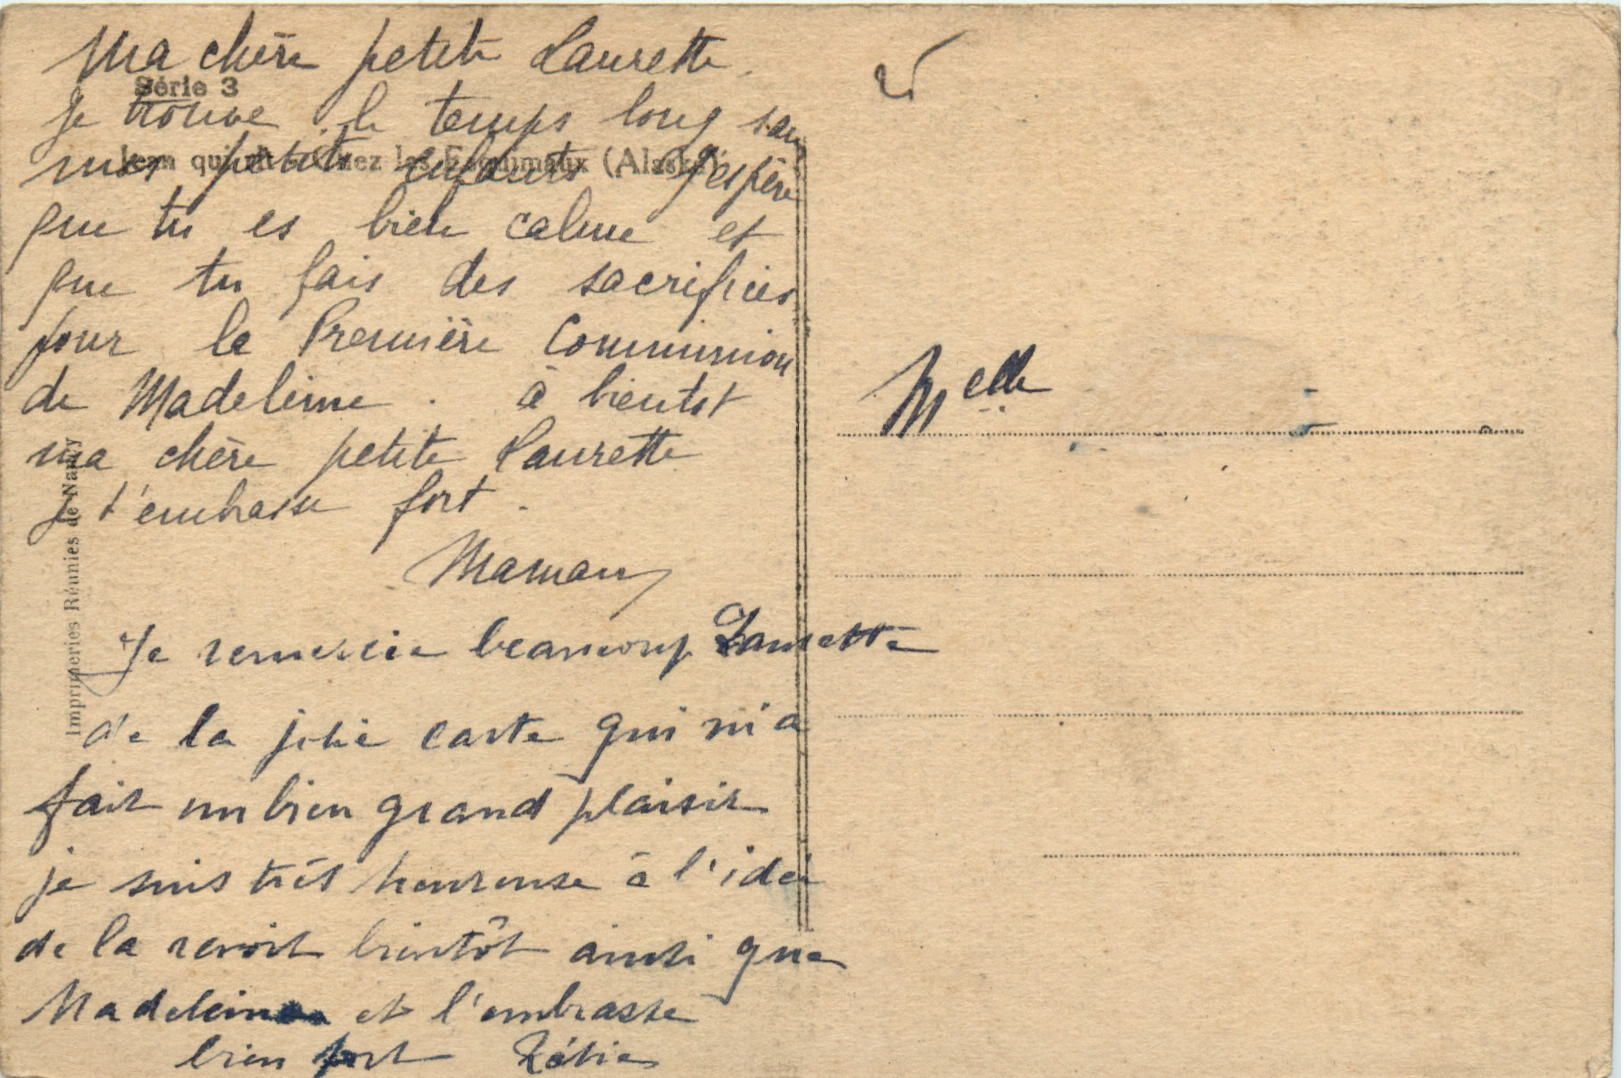 Ma chère petite Laurette.
Série 3
Je trouve le temps long sans
Jean qui rit chez les Esquimaux (Alaska)
mes petits enfants. J'espère
que tu es bien calme et
que tu fais des sacrifices
pour la Première Communion
de Madeleine. à bientot
ma chère petite Laurette
je t'embrasse fort.
Maman
Je remercie beaucoup Laurette
de la jolie carte qui m'a
fait un bien grand plaisir
je suis très heureuse à l'idée
de la revoir bientôt ainsi que
Madeleine et l'embrasse
bien fort
Imprimeries Réunies de Nancy
Melle